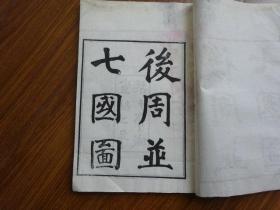 後周並
七國圖